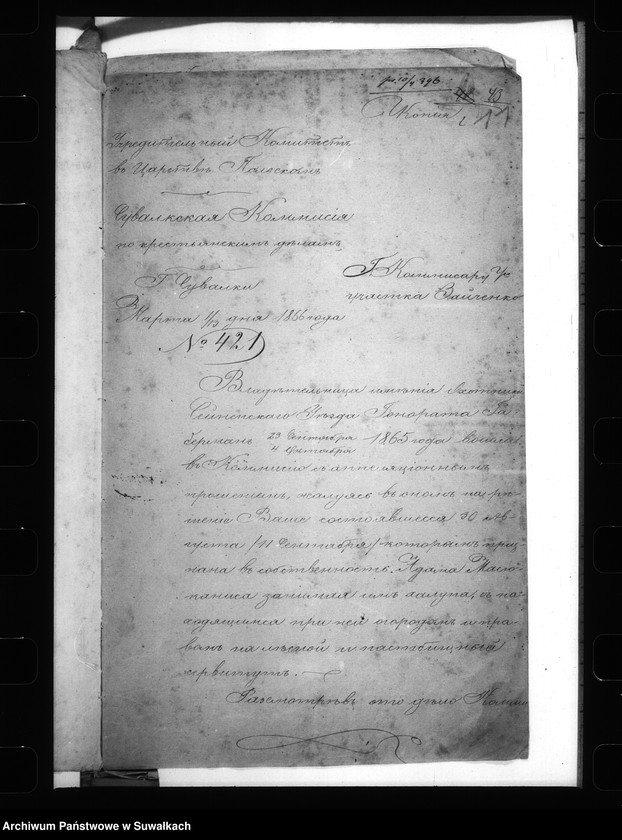 48 43
Копія
Учредительный Комитетъ
въ Царствѣ Польскомъ
Сувалкская Коммисія
по крестьянскимъ дѣламъ
Г. Сувалки
Марта 1/13 дня 1866 года
№ 421
Г. Коммисару
участка Зайченко
Владѣтельница имѣнія
Сейненскаго Уѣзда Гонората Га
берманъ 23 Сентября 1865 года вошла
4 Октября
въ Коммисію съ аппеляціоннымъ
прошеніемъ, жалуясь въ ономъ на рѣ
шеніе Ваше состоявшееся 30 Ав-
густа /11 Сентября/ которымъ приз
нана въ собственность Адама
занимая имъ халупа, съ на-
ходящимся при ней огородомъ и пра-
вомъ на лѣсной и пастбищный
сервитутъ.
Разсмотрѣвъ это дѣло
Archiwum Państwowe w Suwałkach